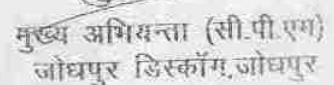 मुख्य अभियन्ता (सी.पी.एम)
जोधपुर डिस्कॉम,जोधपुर